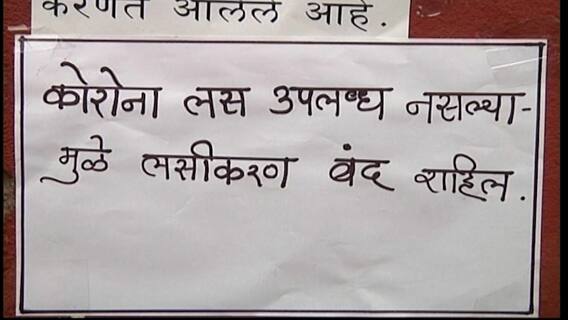 करणेत आलेले आहे.
कोरोना लस उपलब्ध नसल्या-
मुळे लसीकरण बंद राहिल.